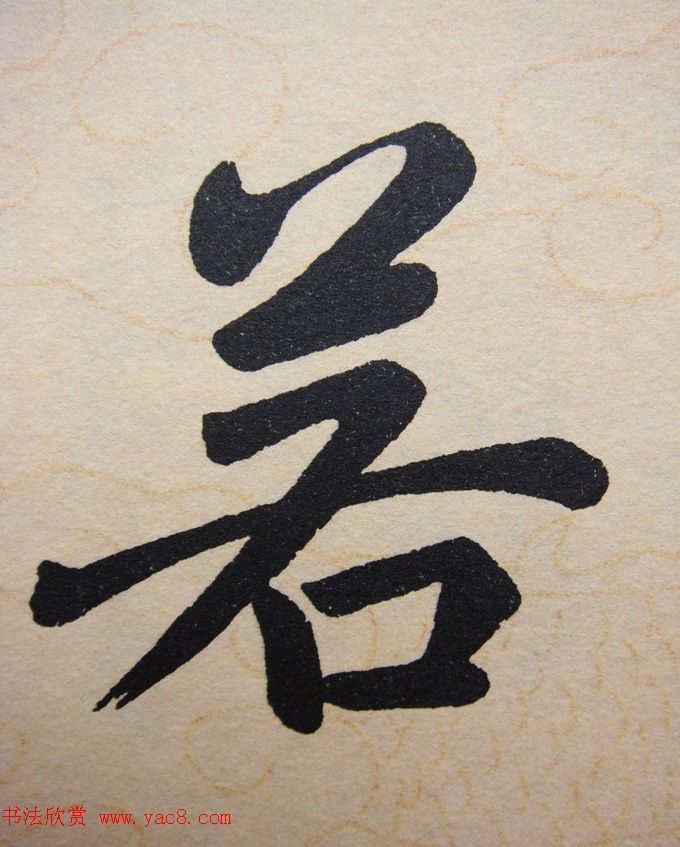 若
书法欣赏 www.yac8.com